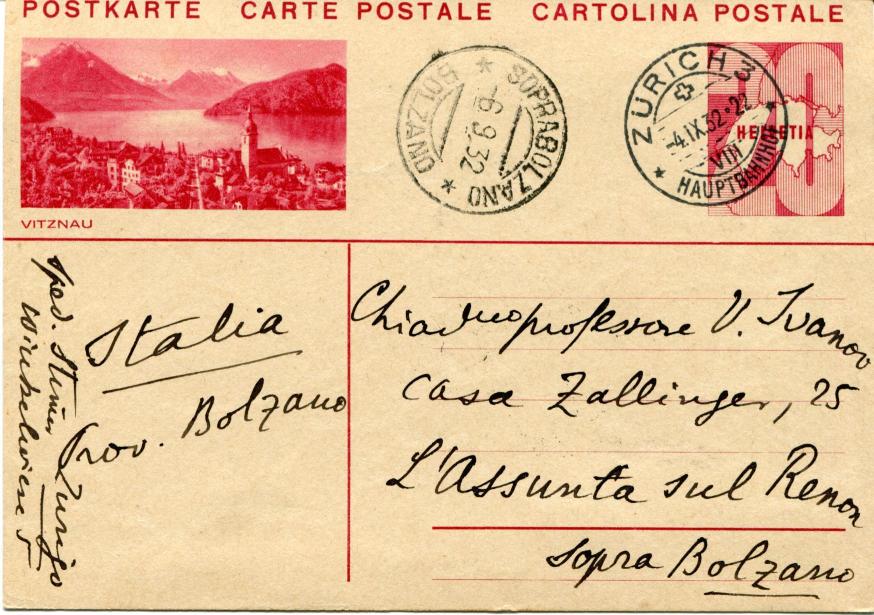 POSTKARTE CARTE POSTALE CARTOLINA POSTALE
VITZNAU
SOPRABOLZANO
-6.9.32
BOLZANO
ZÜRICH 3
-4.IX.32-22
VIII
HAUPTBAHNHOF
20
HELVETIA
Sped. Steiner Zurigo
Winkelwiese 5
Italia
Prov. Bolzano
Chiar.mo professore V. Ivanov
casa Zallinger, 25
L'Assunta sul Renon
sopra Bolzano